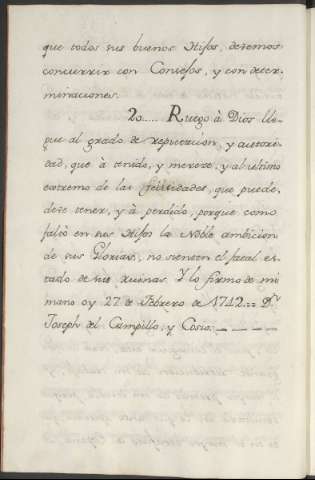 que todos sus buenos Hijos, devemos
concurrir con Consejos, y con deter-
minaciones.
20..... Ruego à Dios lle-
gue al grado de reputacion, y autori-
dad, que à tenido, y merece, y al ultimo
extremo de las felicidades, que puede,
deve tener, y à perdido, porque como
faltò en sus Hijos la Noble ambicion
de sus Glorias, no sienten el fatal es-
tado de sus ruinas. Y lo firmo de mi
mano oy 27 de Febrero de 1742.== Dn.
Joseph del Campillo, y Cosio. — — — —